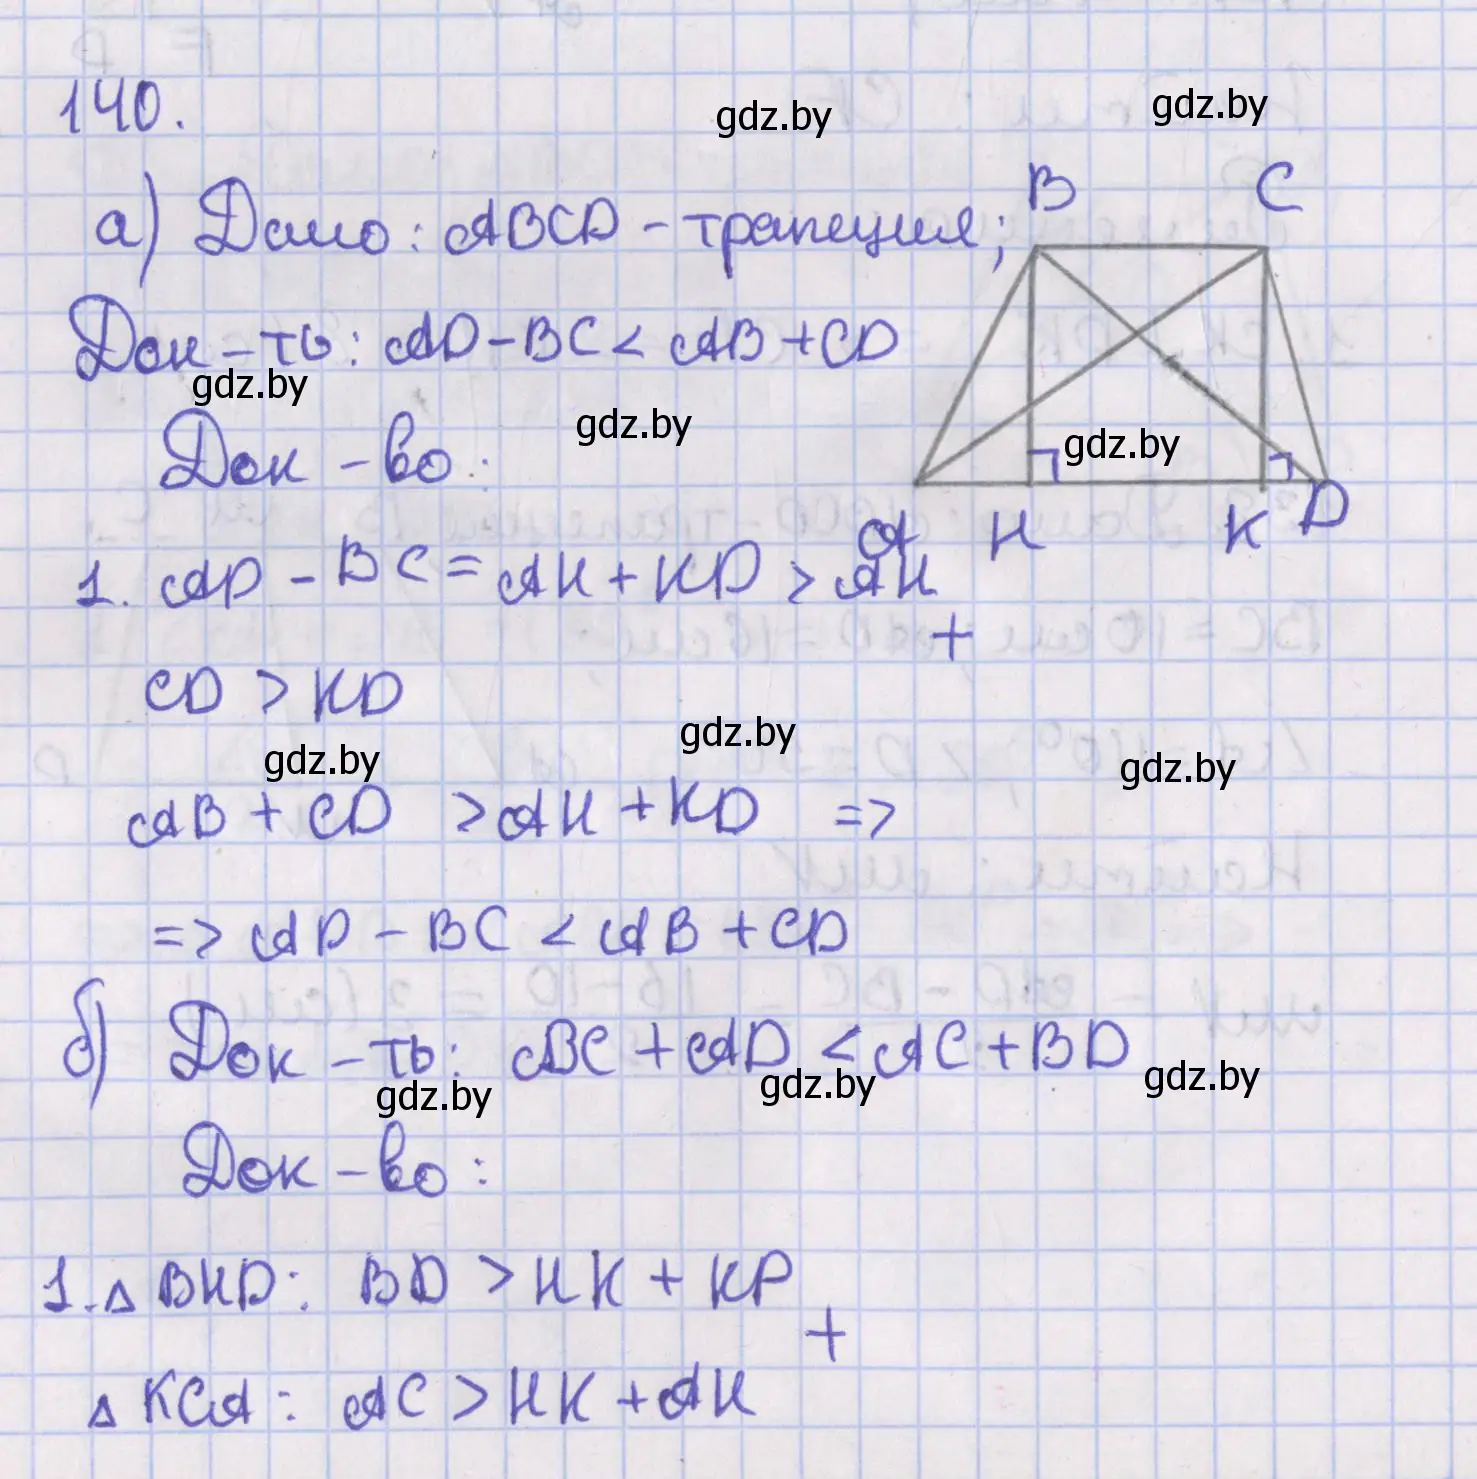 140.
gdz.by
gdz.by
а) Дано: ABCD - трапеция;
B C
Док-ть: AD - BC < AB + CD
gdz.by
gdz.by
gdz.by
Док-во:
A H K D
1. AD - BC = AH + KD > AH
+
CD > KD
gdz.by
gdz.by
gdz.by
AB + CD > AH + KD =>
=> AD - BC < AB + CD
б) Док-ть: BC + AD < AC + BD
gdz.by
gdz.by
gdz.by
Док-во:
1. △ BHD: BD > HK + KP
+
△ KCA: AC > HK + AH